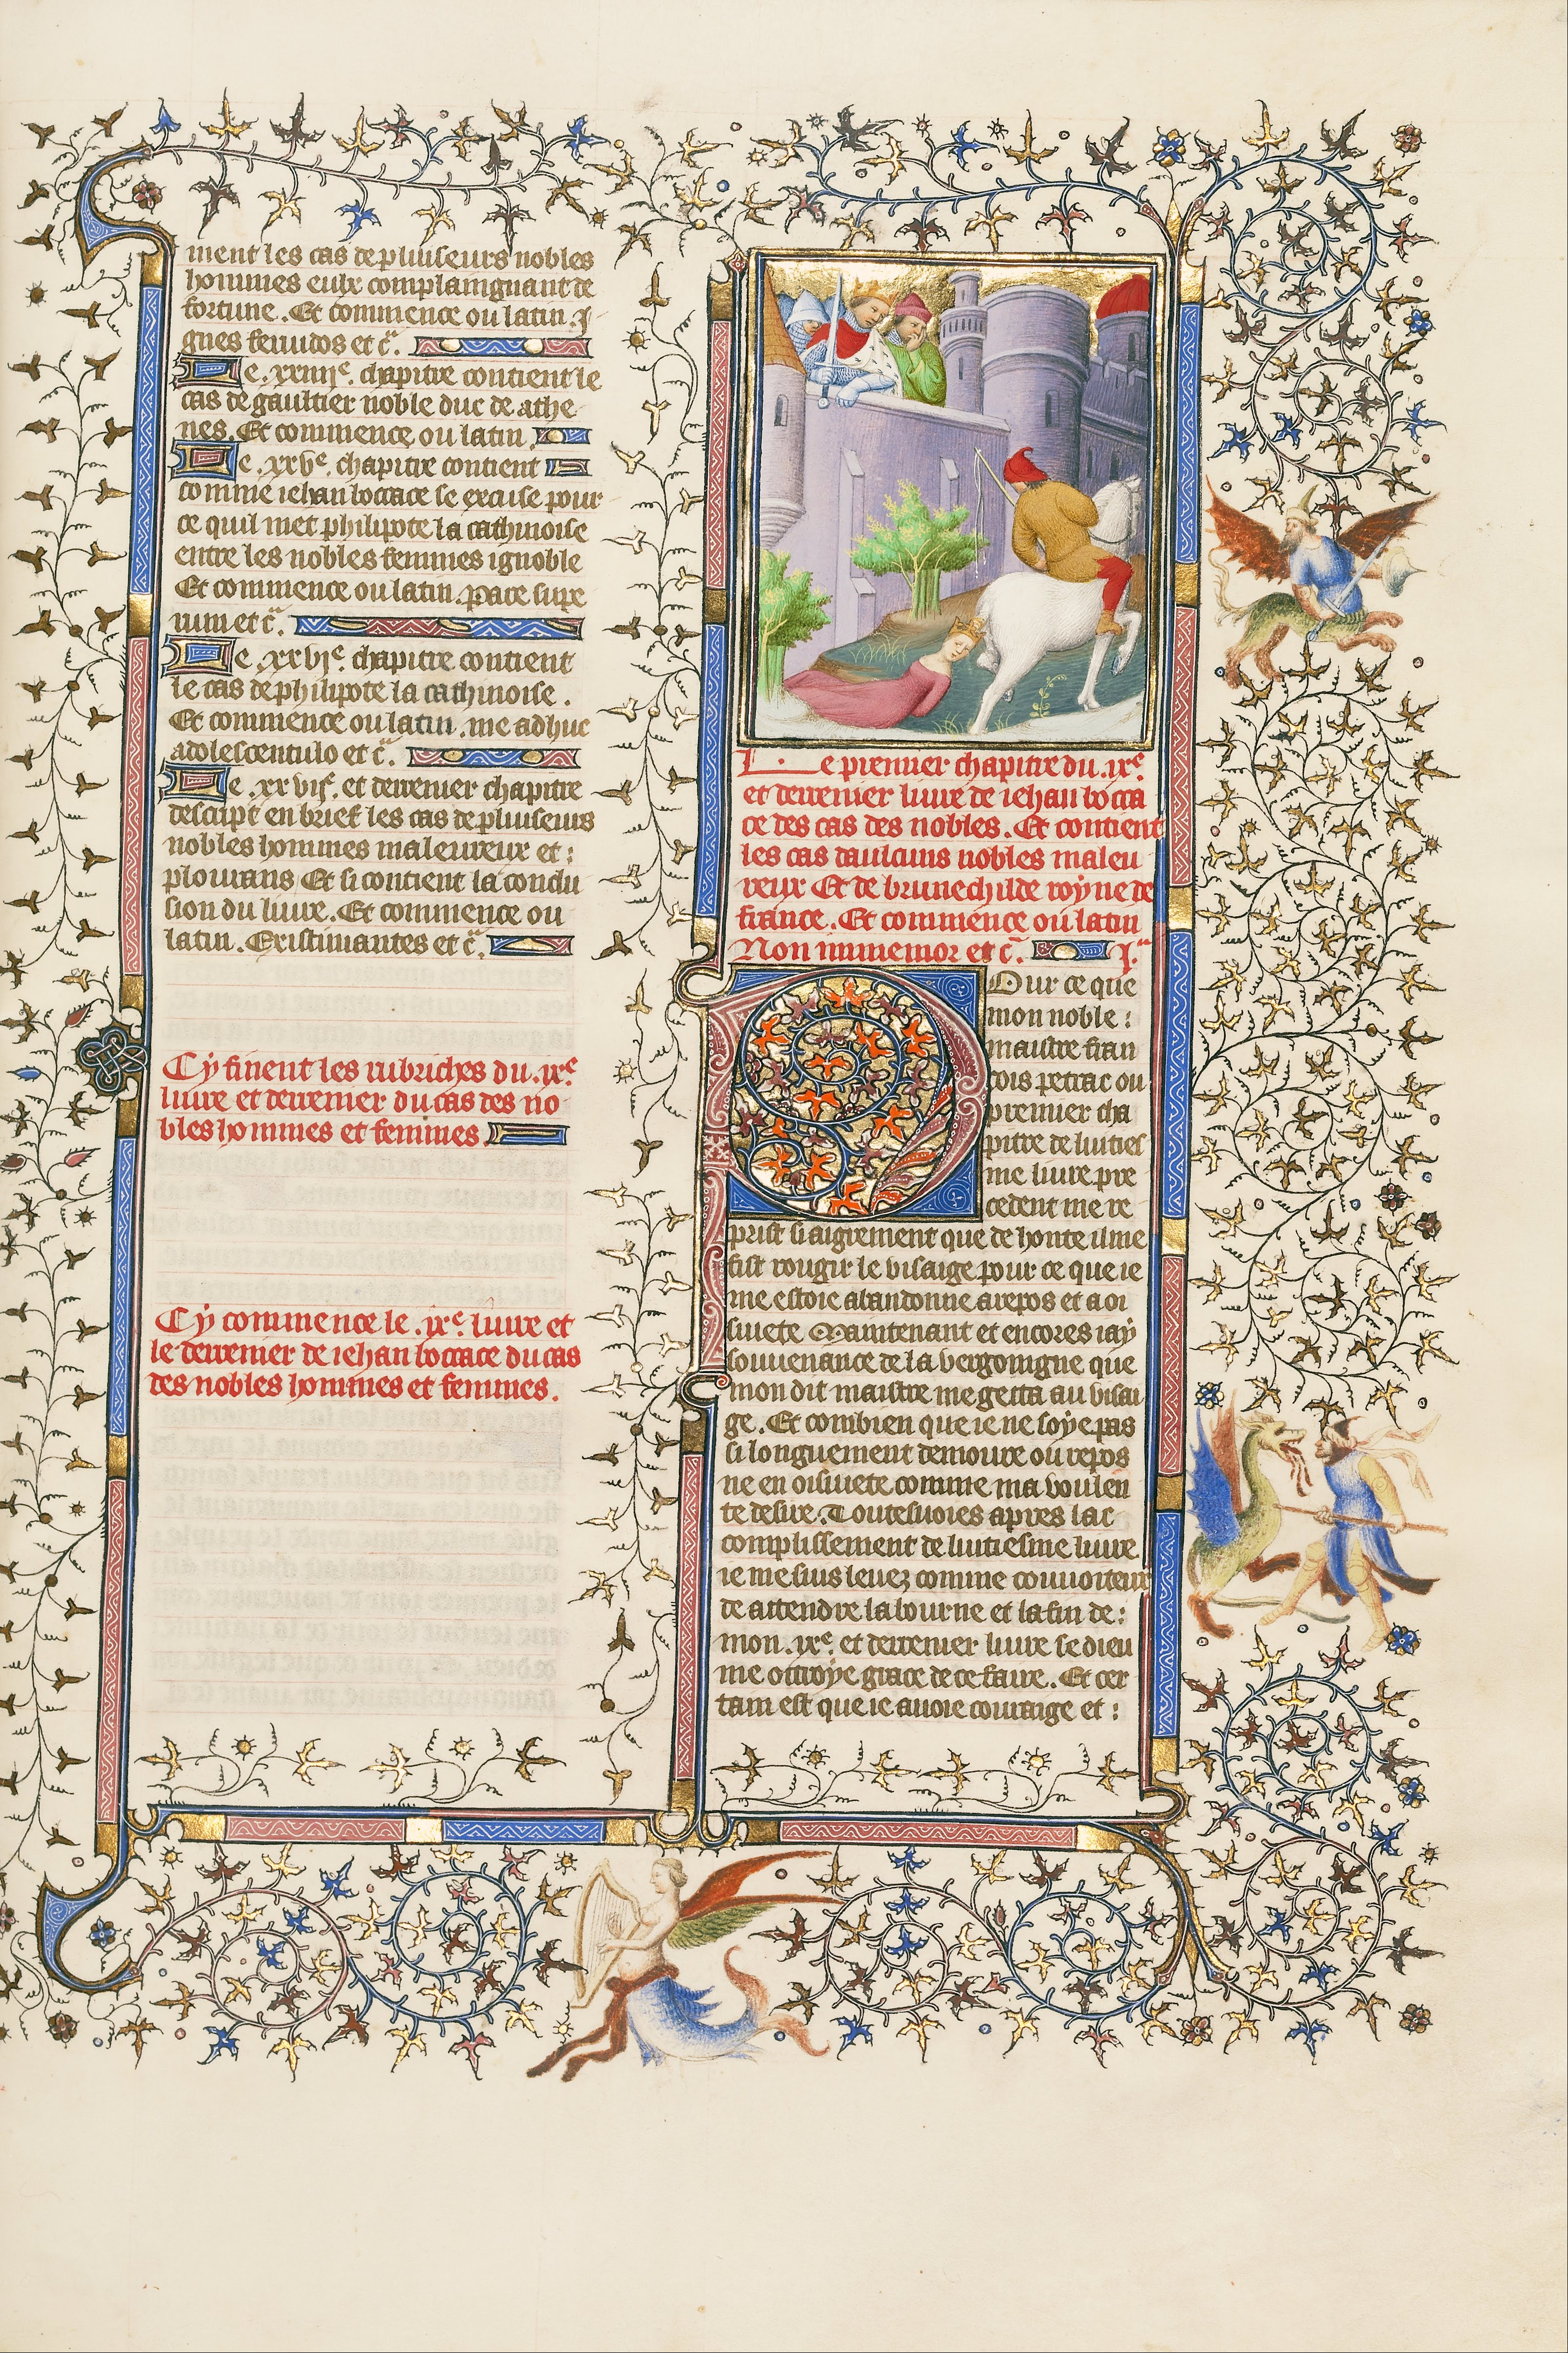 ment les cas de pluseurs nobles
hommes eulx complaingnant de
fortune. Et commence ou latin. I
gnes feruidos et c̃.
Le .xxiiijᵉ. chapitre contient le
cas de gaultier noble duc de athe
nes. Et commence ou latin.
Le .xxvᵉ. chapitre contient
comme iehan boccace se excuse pour
ce quil met philipote la cathinoise
entre les nobles femmes ignoble
Et commence ou latin. pace supe
rum et c̃.
Le .xxvjᵉ. chapitre contient
le cas de philipote la cathinoise.
Et commence ou latin. me adhuc
adolescentulo et c̃.
Le .xxvijᵉ. et derrenier chapitre
descript en brief les cas de pluseurs
nobles hommes maleureux et :
plourans Et si contient la conclu
sion du liure. Et commence ou
latin. Existimantes et c̃.
Cy finent les rubriches du .ixᵉ.
liure et derrenier du cas des no
bles hommes et femmes
Cy commence le .ixᵉ. liure et
le derrenier de iehan boccace du cas
des nobles hommes et femmes.
Le premier chapitre du .ixᵉ.
et derrenier liure de iehan bocca
ce des cas des nobles. Et contient
les cas daulcuns nobles maleu
reux Et de brunechilde royne de
france. Et commence ou latin
Non immemor et c̃. I.
Pour ce que
mon noble :
maistre fran
cois petrac ou
premier cha
pitre de luities
me liure pre
cedent me re
prist si aigrement que de honte il me
fist rougir le visaige pour ce que ie
me estoie abandonne a repos et a oi
siuete Maintenant et encores iay
souuenance de la vergoingne que
mon dit maistre me getta au visai
ge. Et combien que ie ne soye pas
si longuement demoure ou repos
ne en oisiuete comme ma voulen
te desire. Toutesuoies apres lac
complissement de luitiesme liure
ie me suis leuez comme couuoiteux
de attendre la bourne et la fin de :
mon .ixᵉ. et derrenier liure se dieu
me ottroye grace de ce faire. Et cer
tain est que ie auoie couraige et :